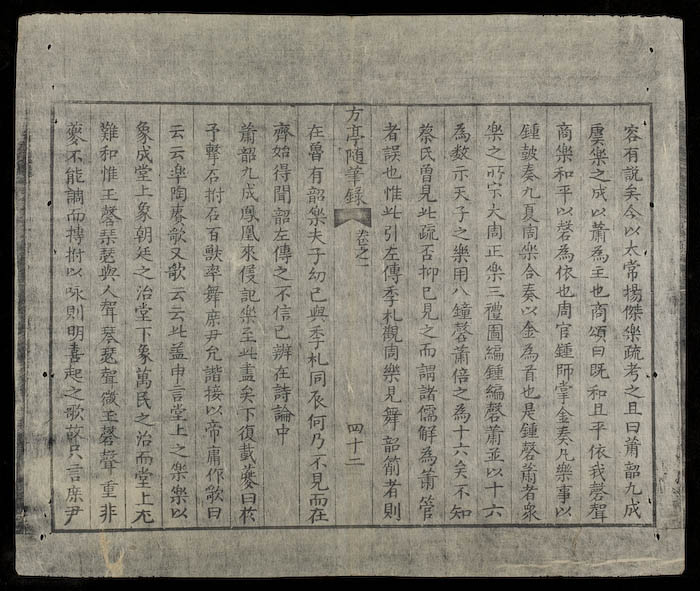 容有說矣今以太常揚傑樂疏考之且曰蕭韶九成
虞樂之成以蕭為主也商頌曰既和且平依我磬聲
商樂和平以磬為依也周官鍾師掌金奏凡樂事以
鍾鼓奏九夏周樂合奏以金為首也是鍾磬蕭者衆
樂之所宗大周正樂三禮圖編鍾編磬蕭並以十六
為数示天子之樂用八鐘磬蕭倍之為十六矣不知
蔡氏曾見此疏否抑已見之而謂諸儒解為蕭管
者誤也惟此引左傳季札觀周樂見舞韶箾者則
方亭随筆録
卷之一
四十二
在魯有韶樂夫子幼已與季札同辰何乃不見而在
齊始得聞韶左傳之不信已辨在詩論中
蕭韶九成鳳凰來儀記樂至此盡矣下復載夔曰於
予擊石拊石百獸率舞庶尹允諧接以帝庸作歌曰
云云皋陶賡歌又歌云云此盖申言堂上之樂樂以
象成堂上象朝廷之治堂下象萬民之治而堂上尤
難和惟玉磬琴瑟與人聲琴瑟聲微玉磬聲重非
夔不能調而搏拊以咏則明喜起之歌故只言庶尹